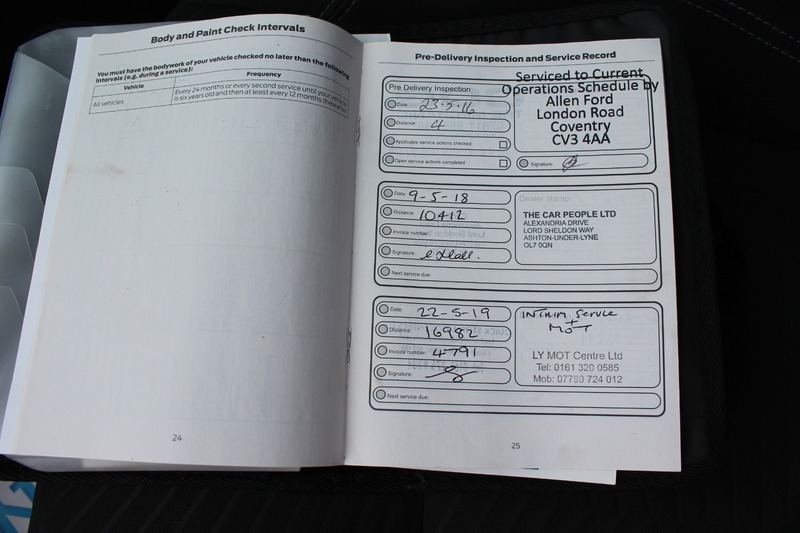 Body and Paint Check Intervals
You must have the bodywork of your vehicle checked no later than the following
intervals (e.g. during a service):
Vehicle Frequency
All vehicles Every 24 months or every second service until your vehicle
is six years old and then at least every 12 months thereafter
24
Pre-Delivery Inspection and Service Record
Pre Delivery Inspection
Date: 23.5.16
Distance: 4
Applicable service actions checked:
Open service actions completed:
Serviced to Current
Operations Schedule by
Allen Ford
London Road
Coventry
CV3 4AA
Signature:
Date: 9-5-18
Distance: 10412
Invoice number:
Signature:
Next service due:
Dealer stamp:
THE CAR PEOPLE LTD
ALEXANDRIA DRIVE
LORD SHELDON WAY
ASHTON-UNDER-LYNE
OL7 0QN
Date: 22-5-19
Distance: 16982
Invoice number: 4791
Signature:
Next service due:
INTERIM SERVICE
+
MOT
LY MOT Centre Ltd
Tel: 0161 320 0585
Mob: 07780 724 012
25